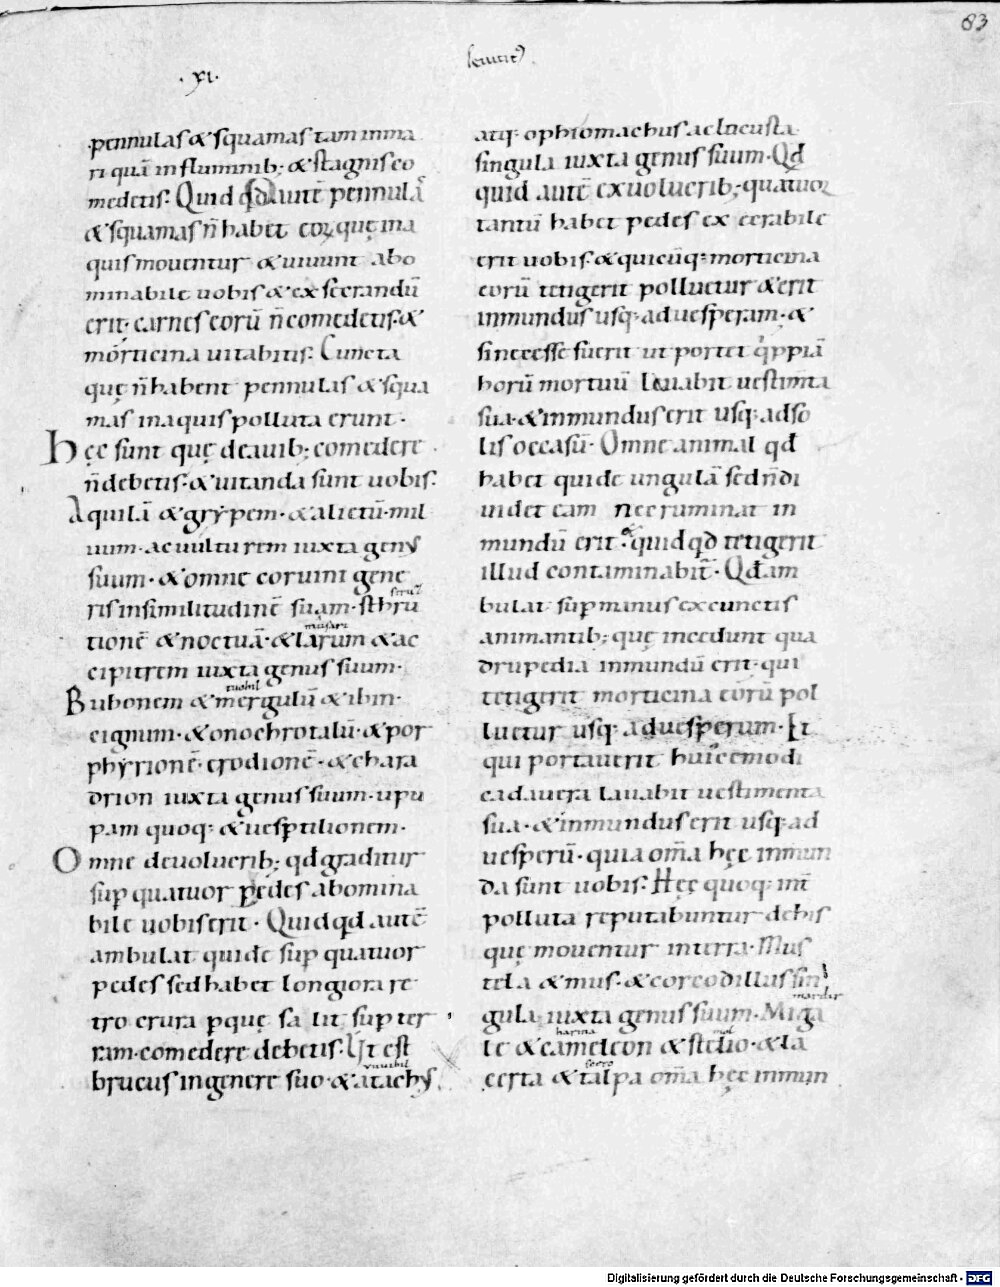 83
leuitic
·XI·
pennulas & squamas tam in ma
ri quā in fluminib; & stagnis co
medetis. Quid q̄d autē pennulā
& squamas n̄ habet eoꝝ quę in a
quis mouentur & uiuunt abo
minabile uobis & exsecrandū
erit· carnes eorū n̄ comedetis· &
morticina uitabitis. Cuncta
quę n̄ habent pennulas & squa
mas in aquis polluta erunt·
Hęc sunt quę de auib; comedere
n̄ debetis· & uitanda sunt uobis.
Aquilā & grypem· & alietū· mil
uum· ac uulturem iuxta genus
suum· & omne coruini gene
ris in similitudinē suam· sthru
tionē & noctuā· & larum & ac
musari
cipitrem iuxta genus suum·
Bubonem & mergulū & ibin·
tuobil
cignum· & onochrotalū· & por
phyrionē· erodionē· & chara
drion iuxta genus suum· upu
pam quoq; & uesp̄tilionem·
Omne de uolucrib; qd̄ graditur
sup̄ quatuor pedes abomina
bile uobis erit· Quid qd̄ autē
ambulat quidē sup̄ quatuor
pedes sed habet longiora re
tro crura p̄ quę salit sup̄ ter
ram· comedere debetis. Ut est
brucus in genere suo· & atachus
atq; ophiomachus ac locusta
singula iuxta genus suum· Qd̄
quid autē ex uolucrib; quatuor
tantū habet pedes execrabile
erit uobis· & quicūq; morticina
eorū tetigerit polluetur & erit
inmundus usq; ad uesperam· &
si necesse fuerit ut portet q̇ppiā
horū mortuū lauabit uestim̄ta
sua· & inmundus erit usq; ad so
lis occasū· Omne animal qd̄
habet quidē ungulā sed n̄ di
uidet eam nec ruminat in
mundū erit· & quidqd̄ tetigerit
illud contaminabit̄· Qd̄ am
bulat sup̄ manus ex cunctis
animantib; quę incedunt qua
drupedia inmundū erit· qui
tetigerit morticina eorū pol
luetur usq; ad uesperum· Et
qui portauerit huiꝰcemodi
cadauera lauabit uestimenta
sua· & inmundus erit usq; ad
uesperū· quia om̄a hęc inmun
da sunt uobis. Hęc quoq; int̄
polluta reputabuntur de his
quę mouentur in terra· Mus
tela & mus· & corcodillus sin
gula iuxta genus suum· Miga
mardar
le & cameleon & stelio· & la
harma mol
certa & talpa om̄a hęc inmun
Digitalisierung gefördert durch die Deutsche Forschungsgemeinschaft - DFG